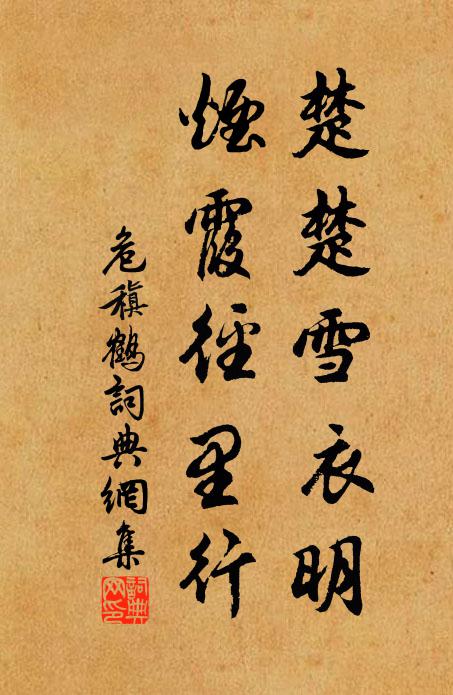 楚楚雪衣明
煙霞徑里行
危稹鶴詞典網集
詞典
网印